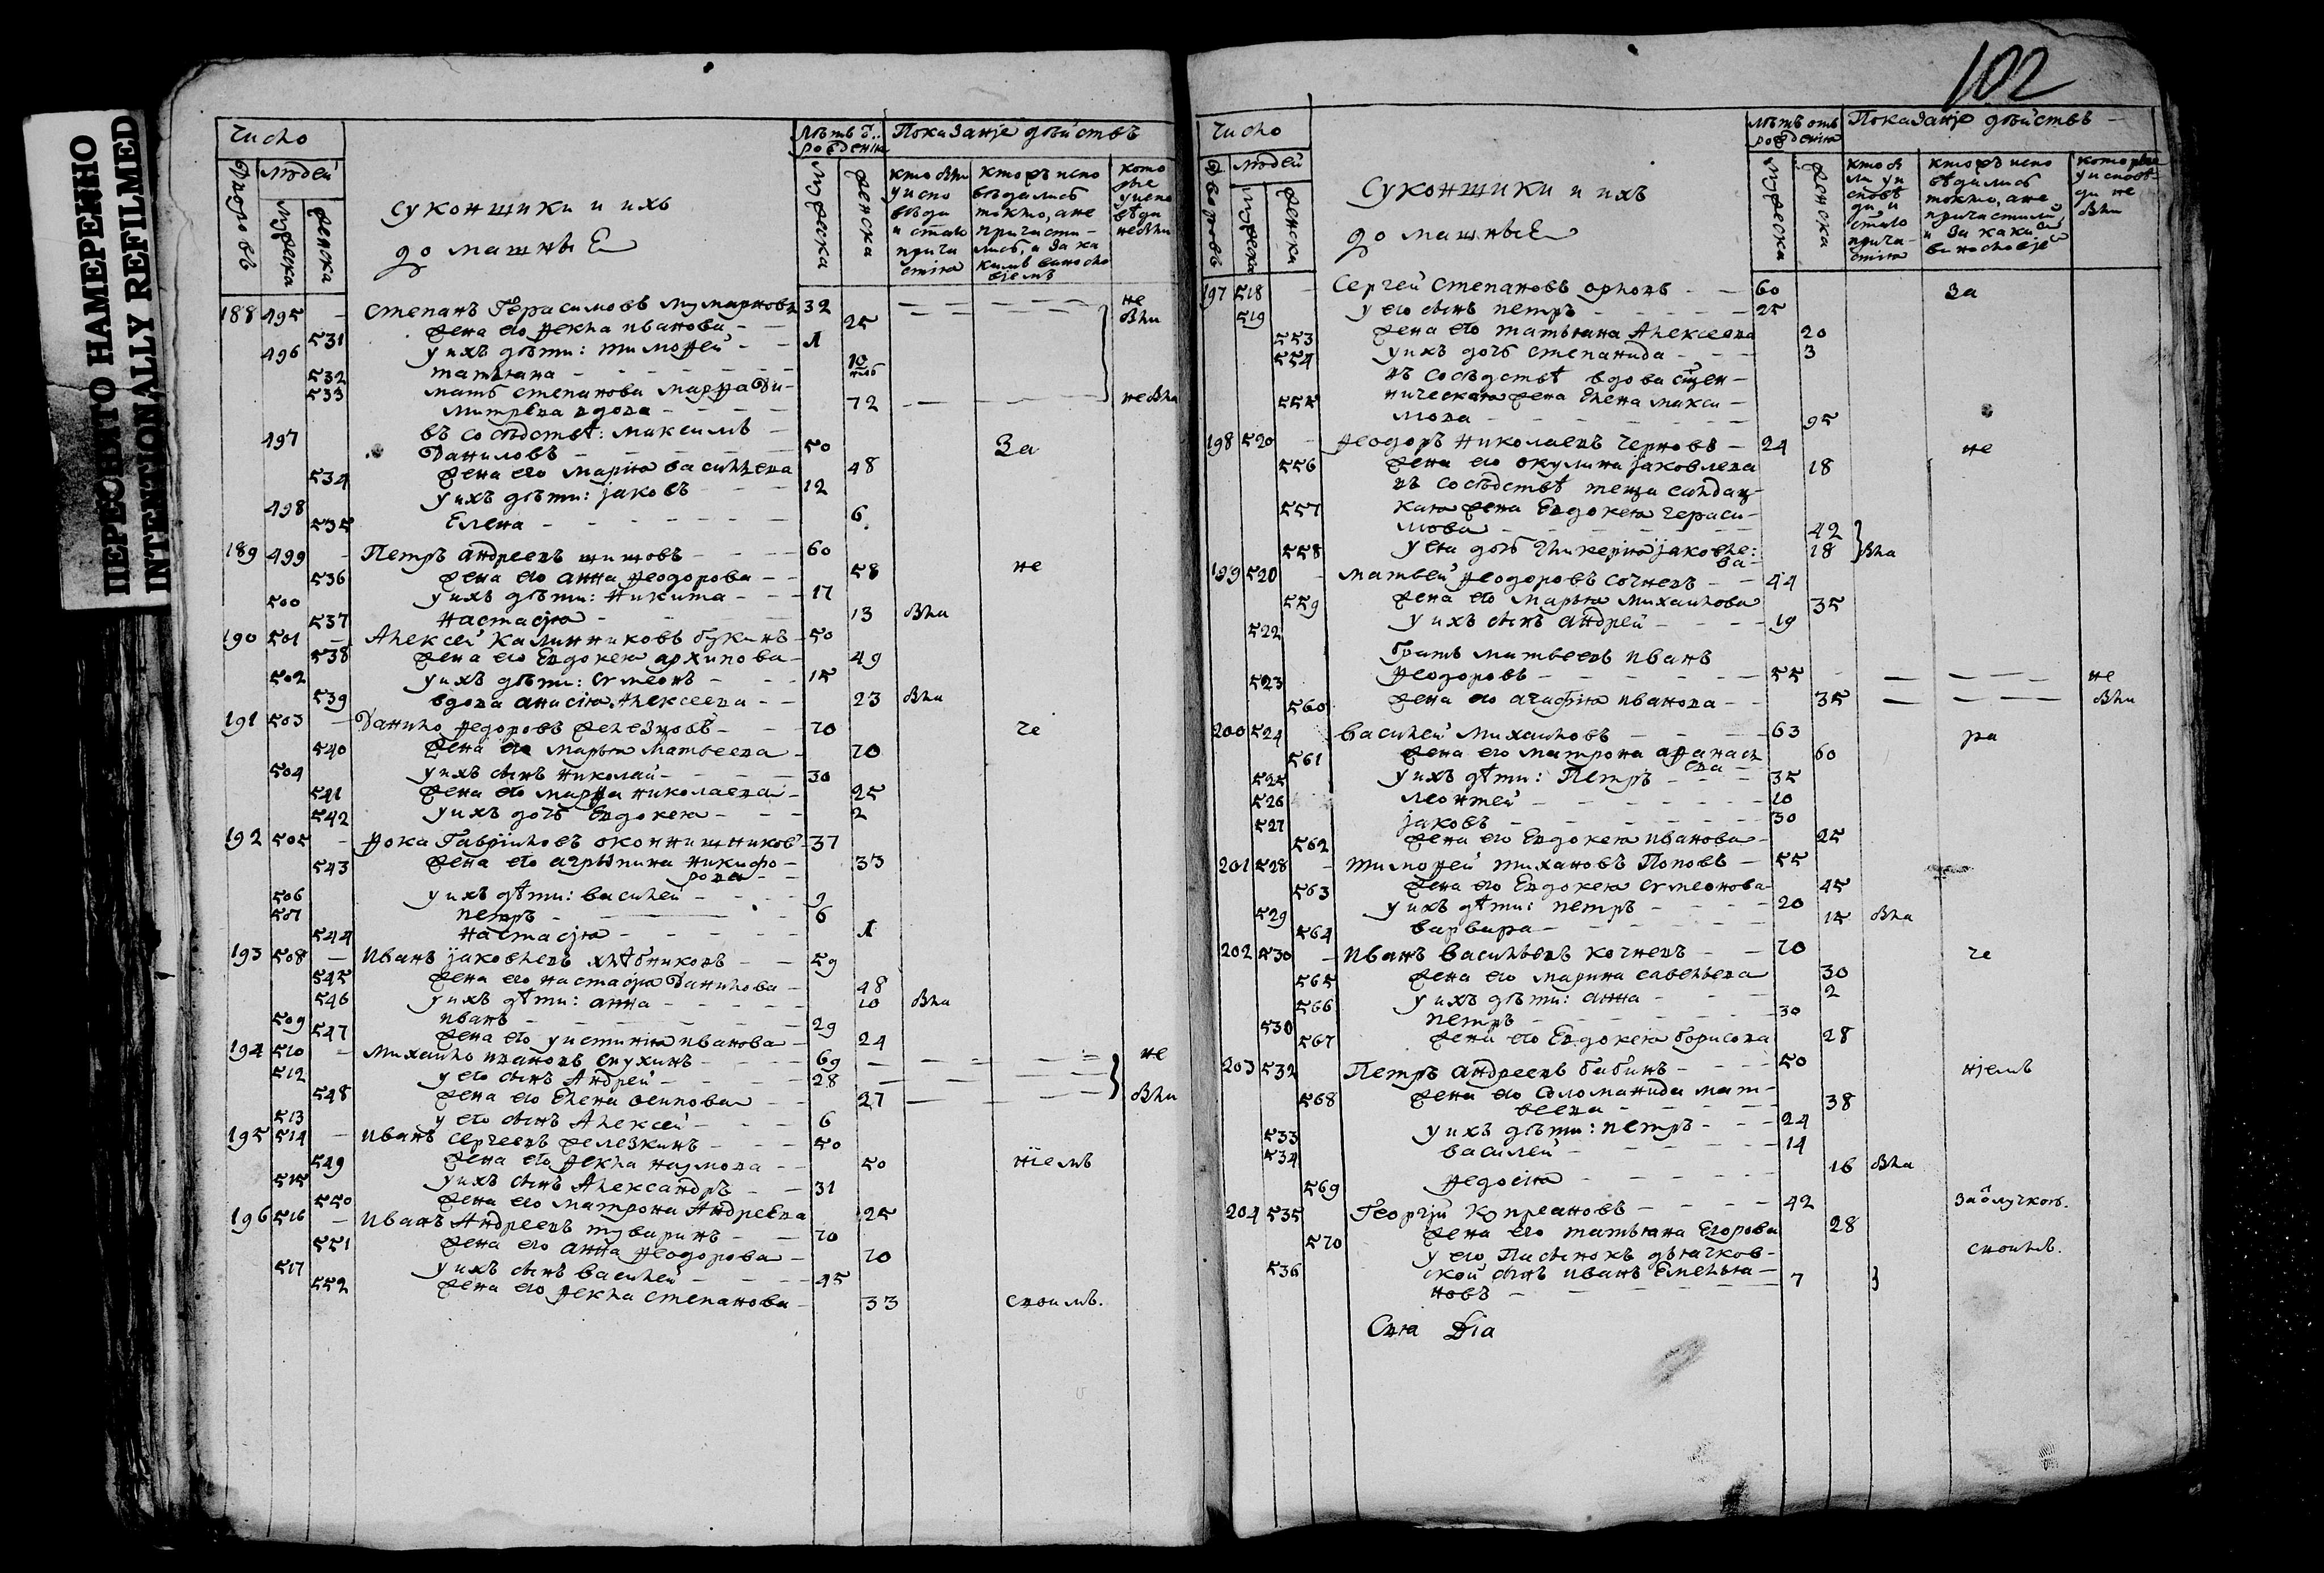 ПЕРЕСНЯТО НАМЕРЕННО
INTENTIONALLY REFILMED
число
Дворовъ
людей
мужеска
женска
суконщики и ихъ
домашныЕ
мужеска
женска
Показанје дѣйствъ
кто были
у испо
вѣди
и
прича
стїя
кто испо
вѣдались
токмо, а не
причасти-
лись, и за ка
кимъ винословјемъ
кото
рые
у испо
вѣди
не были
188 495 - степанъ Герасимовъ 32 не были
531 жена его Ѳекла иванова - 25
496 у ихъ дѣти: тимоѳей - - 1
532 татьяна - 10
533 мать степанова марѳа Ди-
митрева вдова - 72 не была
497 въ сосѣдствѣ: максимъ -
Даниловъ - 50 За
534 жена его марїя васильева 48
498 у ихъ дѣти: јаковъ - - 12
535 Елена - 6
189 499 - Петръ андреевъ шишовъ - 60 не
536 жена его анна Ѳеодорова - - 58
500 у ихъ дѣти: никита - - 17
537 настасја - 13 была
190 501 - Алексей Калинниковъ букинъ - 50
538 жена его Евдокея архипова - 49
502 у ихъ дѣти: симеонъ - - 15
539 вдова анисїя Алексеева - - 23 была
191 503 - Данило Ѳедоровъ - 70 че
540 жена его марья матвеева - 70
504 у ихъ сынъ николай - 30
541 жена его марѳа николаева - 25
542 у ихъ дочь Евдокея - 2
192 505 - Ѳока Гаврїиловъ оконнишниковъ - 37
543 жена его агрыпина никифо-
рова - 33
506 у ихъ дѣти: василей - 9
507 петръ - 6
544 настасја - 1
193 508 - иванъ јаковлевъ хлѣбниковъ - 59
545 жена его настасја Данилова - 48
546 у ихъ дѣти: анна - 10 была
509 иванъ - 29
547 жена его устинїя иванова - 24
194 510 - михаило ивановъ 69 не
512 у его сынъ Андрей - 28
548 жена его Елена осипова - 27 были
513 у его сынъ Алексей - 6
195 514 - иванъ сергеевъ железкинъ - 50
549 жена его Ѳекла наумова - 50 нїемъ
515 у ихъ сынъ Александръ - 31
550 жена его матрона Андреева 25
196 516 - иванъ Андреевъ туваринъ - 70
551 жена его анна Ѳеодорова - 70
517 у ихъ сынъ василей - 45
552 жена его Ѳекла степанова - 33 своимъ.
102
число
Дворовъ
людей
мужеска
женска
суконщики и ихъ
домашныЕ
лѣтъ отъ
рождения
мужеска
женска
Показанје дѣйствъ -
кто бы
ли у и
сповѣ
ди и
прича-
стїя
кто испо
вѣдались
токмо, а не
причастили,
и за каки
винословје
которые
у исповѣ
ди не
были
197 518 - Сергей степановъ орловъ - - 60 За
519 у его сынъ петръ - 25
553 жена его татьяна Алексеева 20
554 у ихъ дочь степанида - 3
въ сосѣдствѣ вдова сщен-
555 ническая жена Елена макси -
мова - 95
198 520 - Ѳеодоръ николаевъ черновъ - 24 не
556 жена его окулина јаковлева 18
въ сосѣдствѣ теща солдац-
557 кая жена Евдокея гераси-
мова - 42
558 у ея дочь гликерїя јаковле:
ва - 18 была
199 520 - матвей Ѳеодоровъ сочневъ - - 44
559 жена его марья михаилова 35
522 у ихъ сынъ андрей - 19
братъ матвеевъ иванъ
523 Ѳеодоровъ - 55 не
560 жена его агафїя иванова - - 35 были
200 524 василей михаиловъ - 63 ра
561 жена его матрона афанась
ева - 60
525 у ихъ дѣти: Петръ - 35
526 леонтей - 10
527 јаковъ - 30
562 жена его Евдокея иванова - 25
201 528 - тимоѳей тихановъ Поповъ - 55
563 жена его Евдокея симеонова - 45
529 у ихъ дѣти: петръ - 20
564 варвара - 15 была
202 530 - иванъ васильевъ кочневъ - - 70 че
565 жена его марина савельева 30
566 у ихъ дѣти: анна - 2
530 петръ - 30
567 жена его Евдокея борисова 28
203 532 Петръ андреевъ бабинъ - 50 нјемъ
568 жена его соломанида мат-
веева - 38
533 у ихъ дѣти: петръ - 24
534 василей - 14
569 Ѳедосїя - 16 была
204 535 Георгїй купреановъ - 42
570 жена его татьяна Егорова 28
у его пасынокъ дьячков-
536 ской сынъ иванъ Емелья- своимъ.
новъ - 7